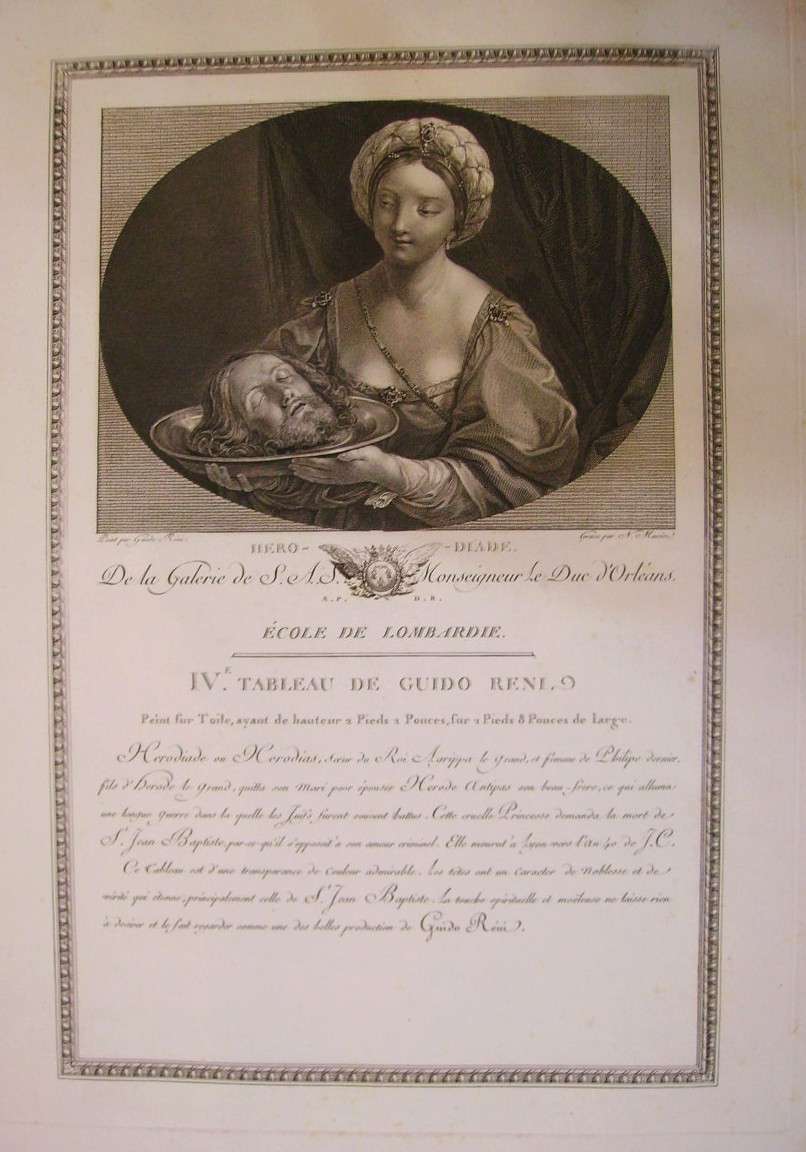 Peint par Guido Reni.
Gravé par N.
HERO- -DIADE.
De la Galerie de S. A. S. Monseigneur le Duc d'Orléans.
A. P. D. R.
ÉCOLE DE LOMBARDIE.
IV.E TABLEAU DE GUIDO RENI.
Peint sur Toile, ayant de hauteur 2 Pieds 2 Pouces, sur 2 Pieds 8 Pouces de large.
Herodiade ou Herodias, sœur du Roi Agrippa le Grand, et femme de Philipe dernier,
fils d'Herode le Grand, quitta son Mari pour épouser Herode Antipas son beau-frere, ce qui alluma
une longue guerre dans la quelle les Juifs furent souvent battus. Cette cruelle Princesse demanda la mort de
S.t Jean Baptiste, par-ce-qu'il s'opposoit à son amour criminel. Elle mourut à Lyon vers l'An 40 de J.C.
Ce Tableau est d'une transparance de Couleur admirable. Les têtes ont un Caracter de Noblesse et de
vérité qui étonne, principalement celle de S.t Jean Baptiste. La touche spirituelle et moëleuse ne laisse rien
à desirer et le fait regarder comme une des belles production de Guido Réni.